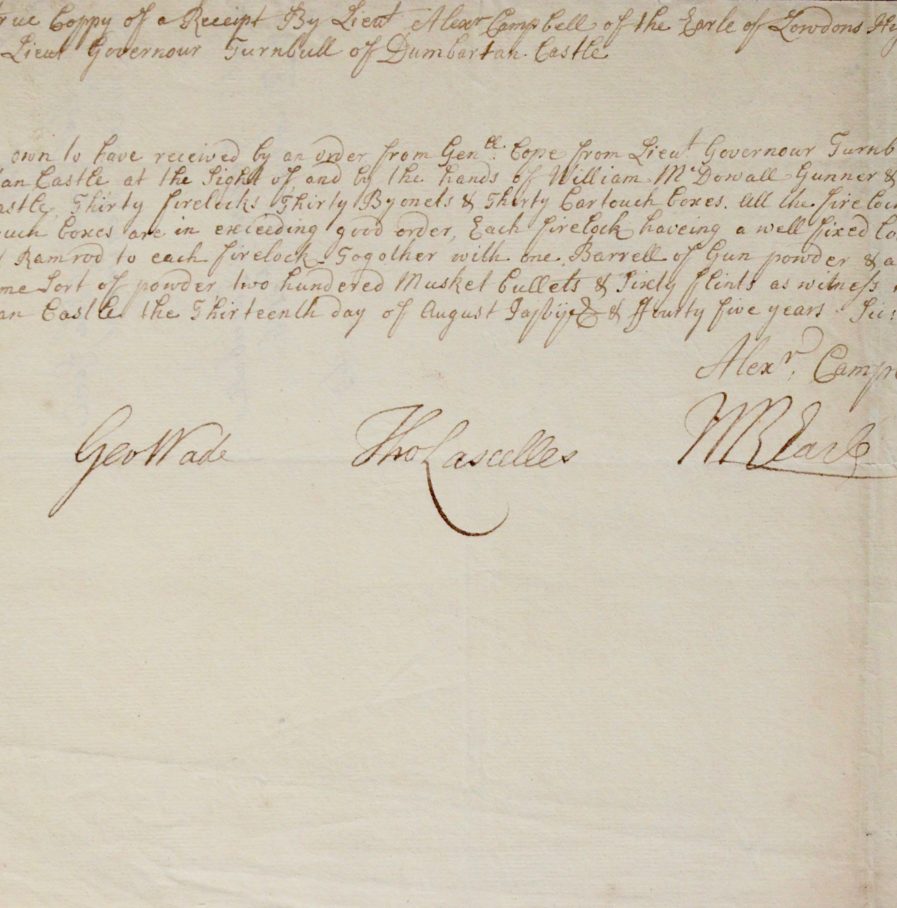 true Coppy of a Receipt By Lieut Alexr Campbell of the Earle of Lowdons
Lieut Governour Turnbull of Dumbartan Castle
own to have received by an order from Genll. Cope from Lieut Governour Turnb
an Castle at the Sight of and by the hands of William McDowall Gunner &
astle Thirty firelocks Thirty Byonets & Thirty Cartouch boxes. All the fireloc
ouch boxes are in exceeding good order, Each firelock haveing a well fixed
Ramrod to each firelock Togother with one Barrell of Gun powder & a
me Sort of powder two hundered Musket bullets & Sixty flints as witness
an Castle the Thirteenth day of August & ffourty five years
Alexr, Camp
Geo Wade Tho Lascelles